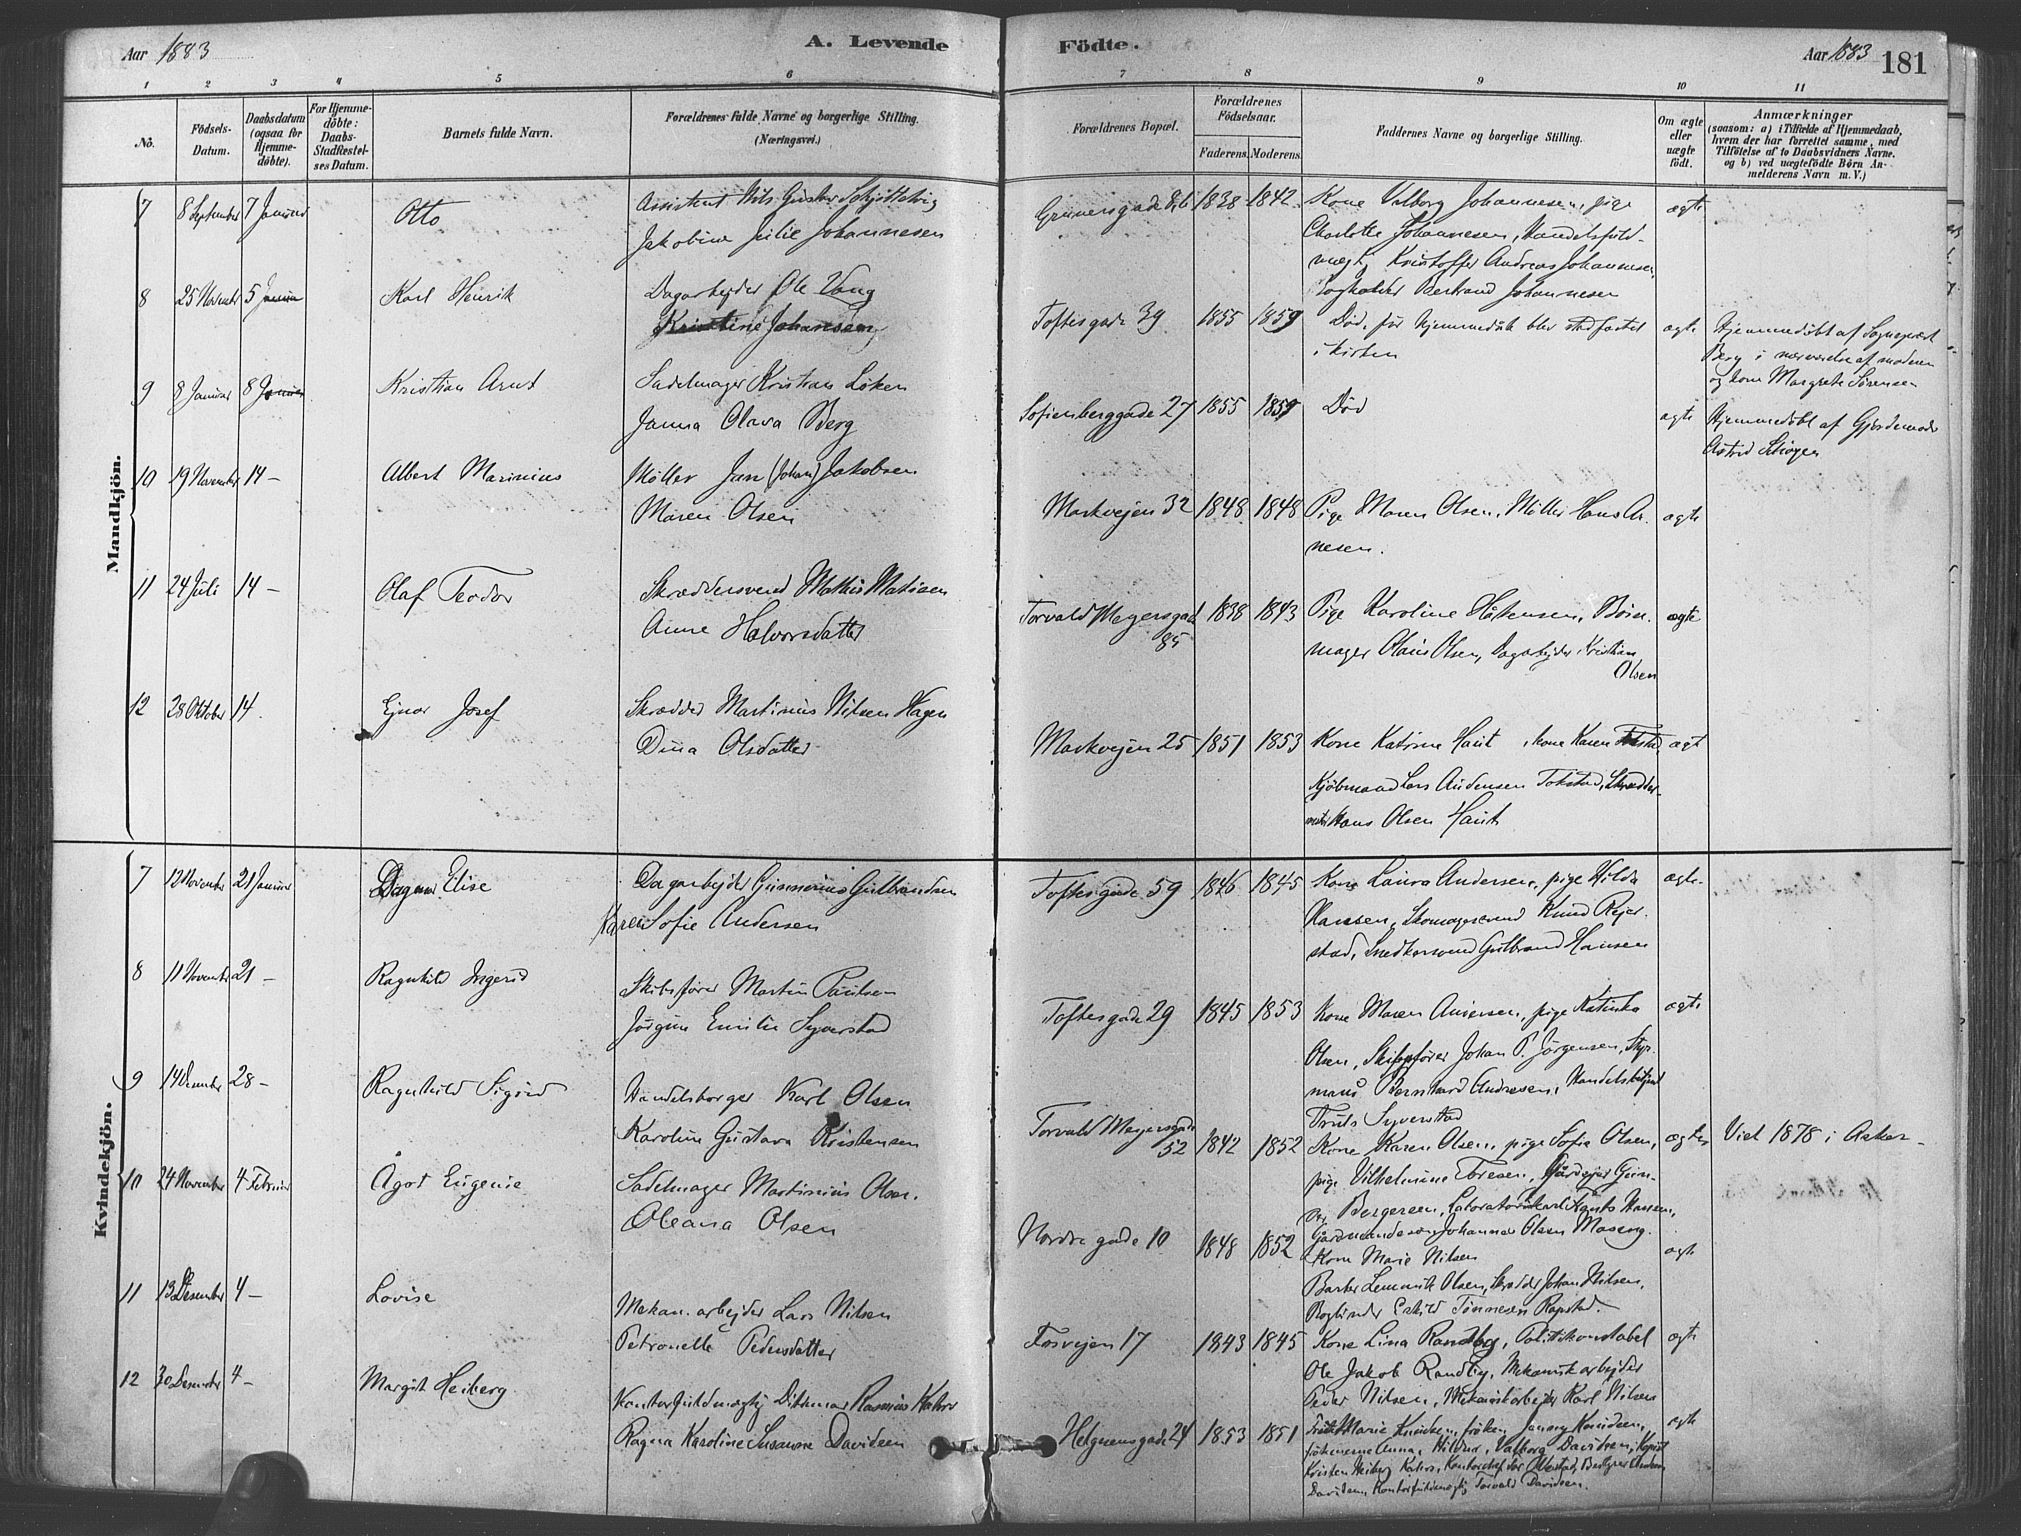 Aar 1883
A. Levende
Födte.
Aar 1883
181
1 2 3 4 5 6 7 8 9 10 11
No.
Födsels-Datum.
Daabsdatum (ogsaa for Hjemme-döbte).
For Hjemme-döbte: Daabs-Stadfæstel-ses Datum.
Barnets fulde Navn.
Forældrenes fulde Navne og borgerlige Stilling. (Næringsvei.)
Forældrenes Bopæl.
Forældrenes Födselsaar.
Faderens. Moderens.
Faddernes Navne og borgerlige Stilling.
Om ægte eller uægte födt.
Anmærkninger
(saasom: a) i Tilfælde af Hjemmedaab, hvem der har forrettet samme, med Tilföielse af to Daabsvidners Navne, og b) ved uægtefödte Börn An-melderens Navn m. V.)
Mandkjön.
7 8 September 7 Januar Otto
Assistent Nils Gustav
Jakobine Julie Johannesen
Grünersgade 1838 1842
Kone Valborg Johannesen, pige
Charlotte Johannesen, Handelsfuld-
mægt. Kristoffer Andreas Johannesen,
Bertrand Johannesen
ægte
8 25 November 5 Januar Karl Henrik
Dagarbejder Ole Vang
Kristine Johansen
Toftesgade 39 1855 1859
Död, før hjemmedåb blev stadfæstet
i kirken
ægte
Hjemmedøbt af Sogneprest
Berg i nærværelse af moderen
og kone Margrete Sørensen
9 8 Januar 8 Januar Kristian Arnt
Sadelmager Kristian Løken
Janna Olava Berg
Sofienberggade 27 1855 1859
Död
ægte
Hjemmedøbt af Gjordemoder
Astrid
10 19 November 14 – Albert Marinius
Møller Jan (Johan) Jakobsen
Maren Olsen
Markvejen 32 1848 1848
Pige Maren Olsen, Møller Hans Ar-
nesen.
ægte
11 24 Juli 14 – Olaf Teodor
Skræddersvend Mathis Matisen
Anne Halvorsdatter
Torvald Meyersgade
85
1838 1843
Pige Karoline Håkensen,
mager Olaus Olsen, Dagarbejder Kristian
Olsen
ægte
12 28 Oktober 14. Ejnar Josef
Skrædder Martinus Nilsen Hagen
Dina Olsdatter
Markvejen 25 1851 1853
Kone Katrine Haut, kone Karen
Kjøbmand Lars Andersen Tokstad, Skrædder-
Hans Olsen Haut
ægte
Kvindekjön.
7 12 November 21 Januar Dagmar Elise
Dagarbejder Gunnerius Gulbrandsen
Karen Sofie Andersen
Toftesgade 59 1846 1845
Kone Laura Andersen, pige Hilda
Hansen, Skomagersvend Knud Rejer-
stad, Snedkersvend Gulbrand Hansen
ægte
8 11 November 21 – Ragnhild Ingerid
Skibsfører Martin Paulsen
Jørgine Emilie Syverstad
Toftesgade 29 1845 1853
Kone Maren Andersen, pige Katinka
Olsen, Skibsfører Johan P. Jørgensen, Styr-
mand Bernhard Andresen,
Truls Syverstad
ægte
9 14 Desember 28 – Ragnhild Sigrid
Handelsborger Karl Olsen
Karoline Gustava Kristensen
Torvald Meyersgade
52
1842 1852
Kone Karen Olsen, pige Sofie Olsen,
pige Vilhelmine Toresen,
Bergersen, Hansen,
Johannes Olsen Moseng.
ægte
Viet 1878 i Asker –
10 24 November 4 Februar Ågot Eugenie
Sadelmager Martinius Olsen.
Oleana Olsen
Nordre gade 10 1848 1852
Kone Marie Nilsen
Olsen, Skrædder Johan Nilsen,
Bogbinder Eskild Tønnesen Rogstad.
ægte
11 13 Desember 4 – Lovise
Mekan. arbejder Lars Nilsen
Petronelle Pedersdatter
Fosvejen 17 1843 1845
Kone Lina Randby, Politikonstabel
Ole Jakob Randby, Mekanisk arbejder
Peder Nilsen, Mekanisk arbejder Karl Nilsen
ægte
12 30 Desember 4 – Margit Heiberg
Kontorfuldmægtig Ditmar Rasmus Kahrs
Ragna Karoline Susanne Davidsen
Helgesensgade 24 1853 1851
Marie Knudsen, frøken Jenny Knudsen,
frøknerne Anna, Hildur, Valborg Davidsen, Kopist
Kristen Heiberg Kahrs,
Davidsen, Kontorfuldmægtig Torvald Davidsen.
ægte